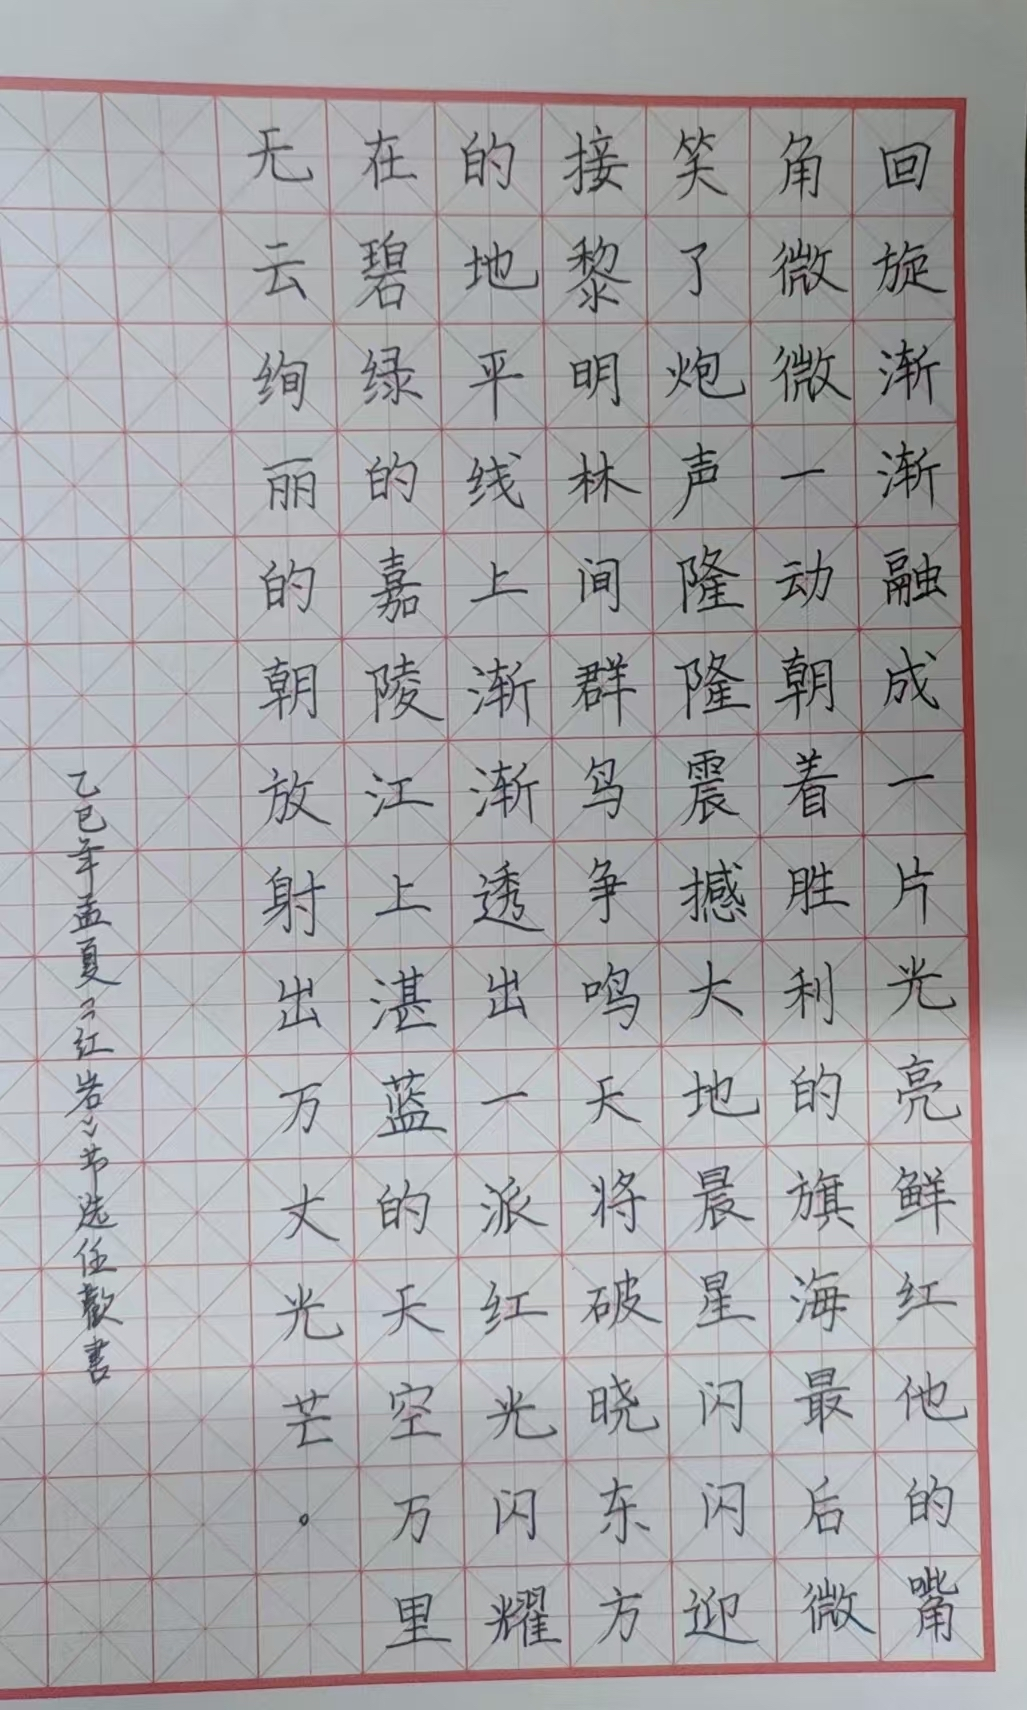 回旋渐渐融成一片光亮鲜红他的嘴
角微微一动朝着胜利的旗海最后微
笑了炮声隆隆震撼大地晨星闪闪迎
接黎明林间群鸟争鸣天将破晓东方
的地平线上渐渐透出一派红光闪耀
在碧绿的嘉陵江上湛蓝的天空万里
无云绚丽的朝放射出万丈光芒。
乙巳年孟夏《红岩》节选任歡書